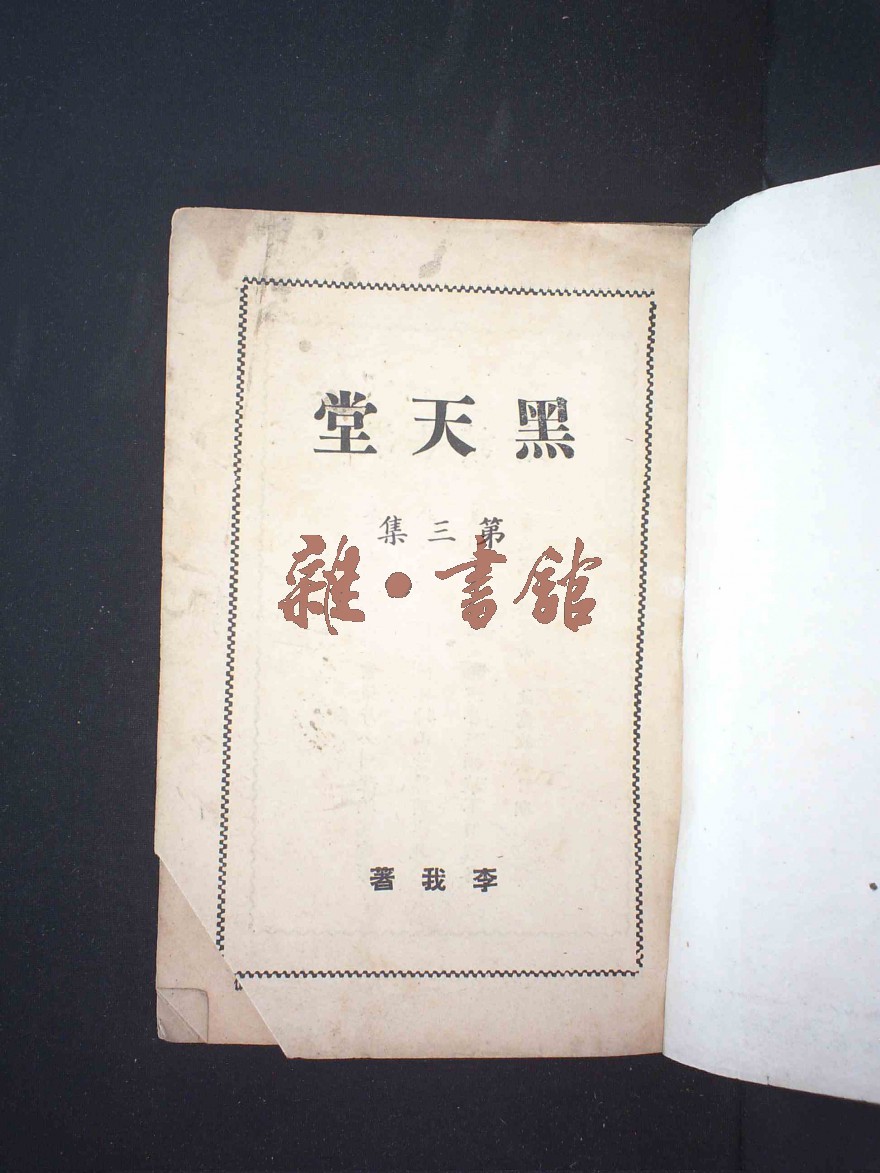 黑天堂
第三集
雜·書館
李我著